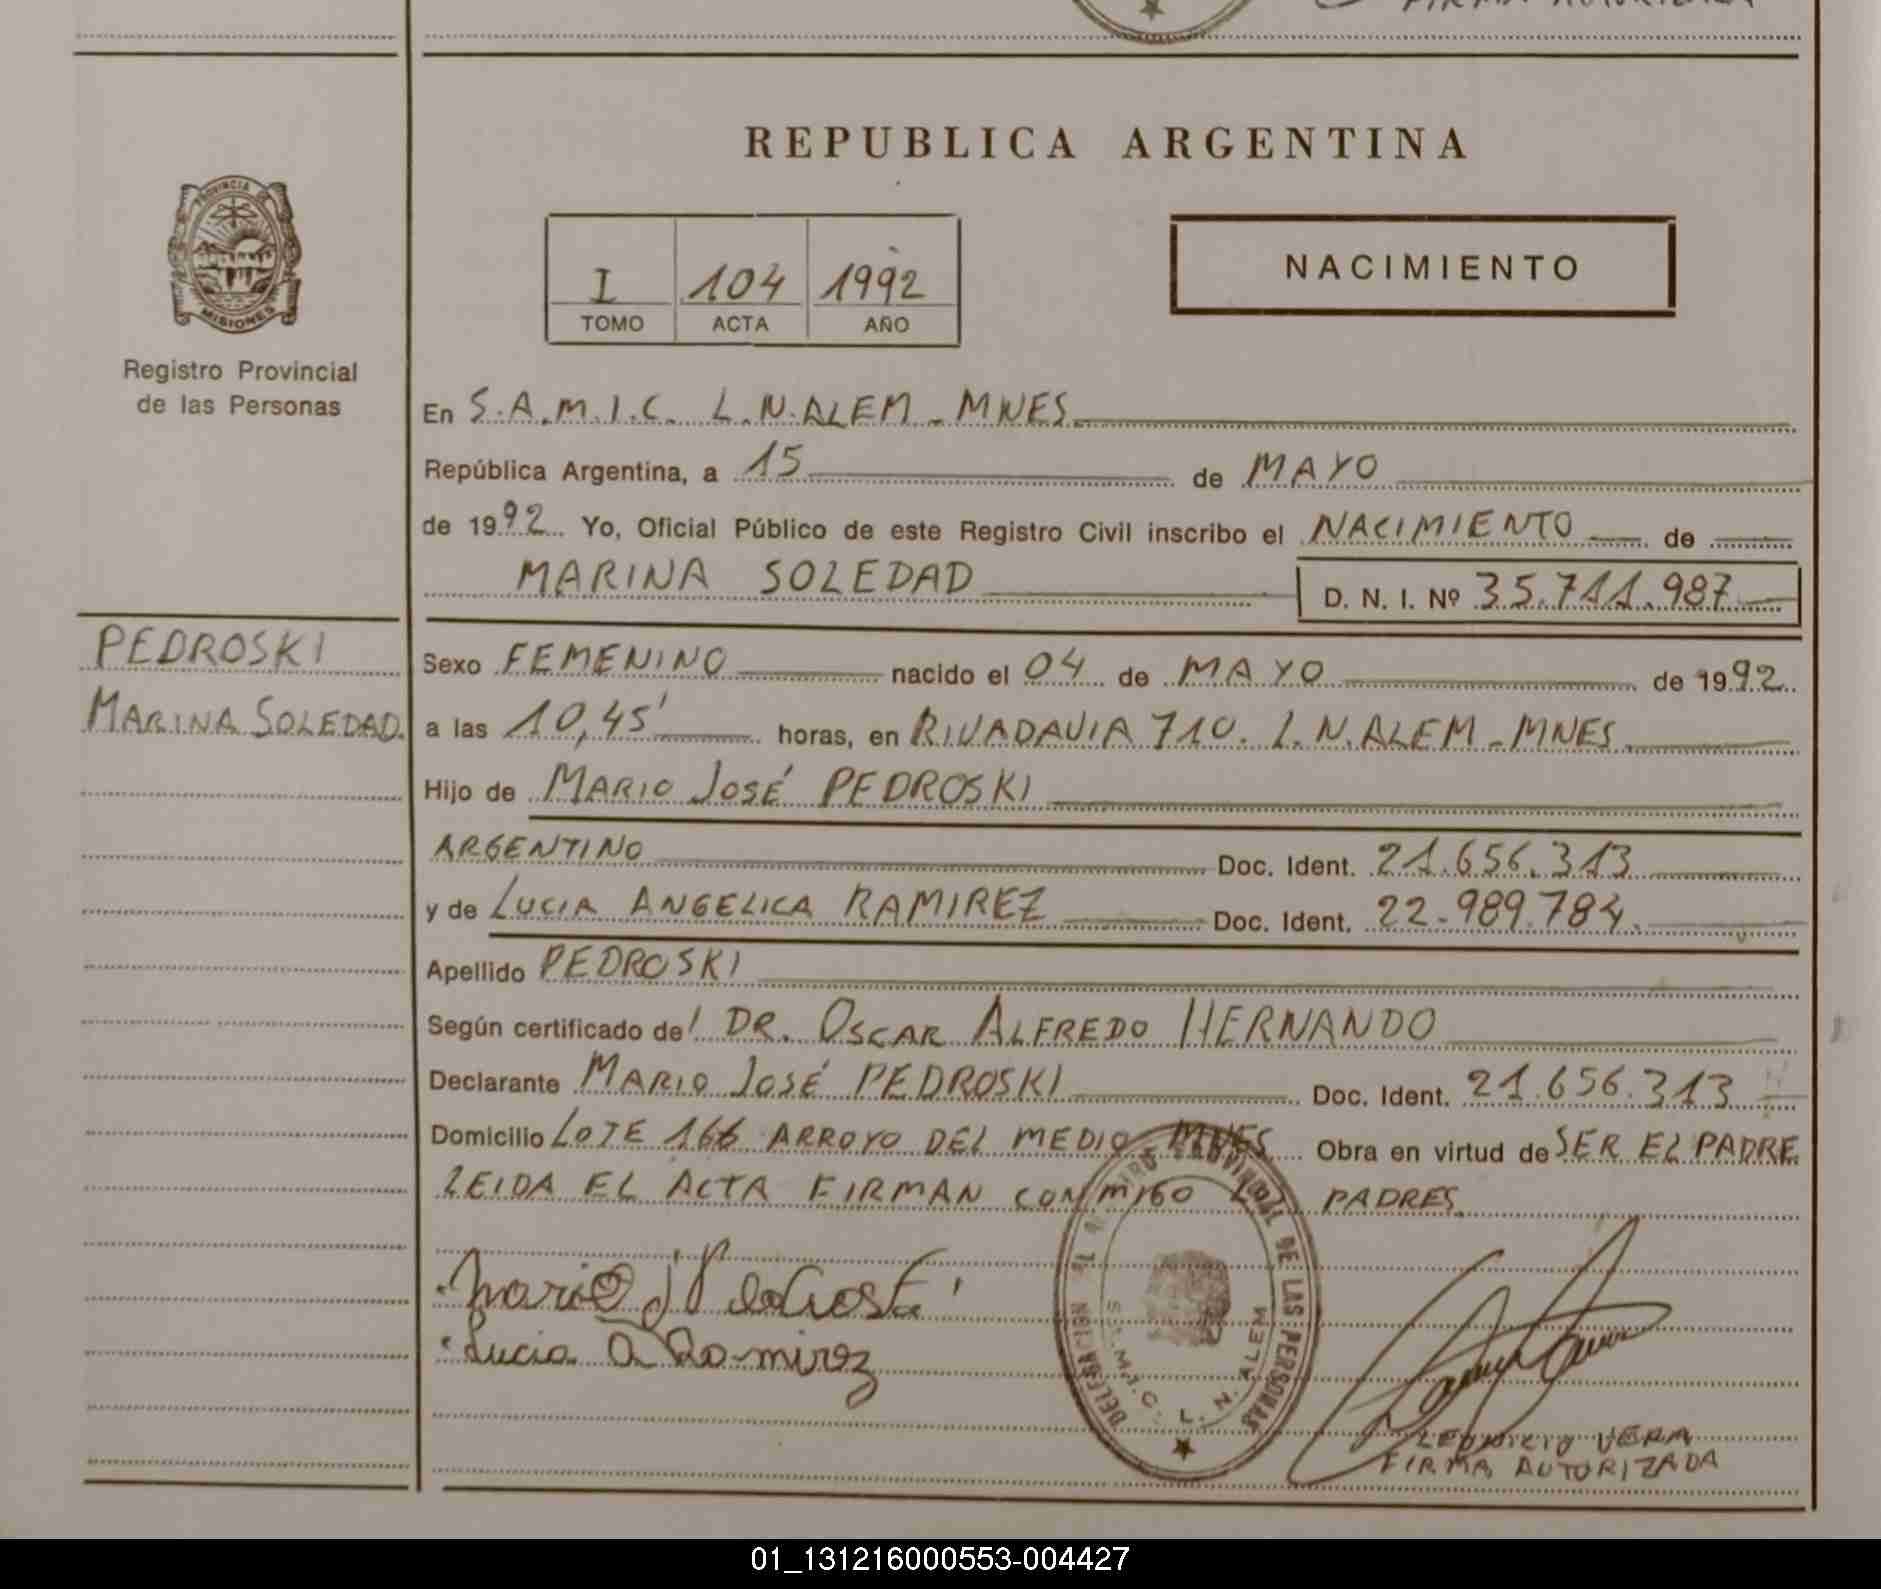 FIRMA AUTORIZADA
REPUBLICA ARGENTINA
PROVINCIA
MISIONES
Registro Provincial
de las Personas
I 104 1992
TOMO ACTA AÑO
NACIMIENTO
En S.A.M.I.C. L.N.ALEM - MNES
República Argentina, a 15 de MAYO
de 1992 Yo, Oficial Público de este Registro Civil inscribo el NACIMIENTO de
MARINA SOLEDAD D. N. I. Nº 35.711.987
PEDROSKI
MARINA SOLEDAD.
Sexo FEMENINO nacido el 04 de MAYO de 1992
a las 10,45' horas, en RIVADAVIA 710. L.N.ALEM - MNES
Hijo de MARIO JOSÉ PEDROSKI
ARGENTINO Doc. Ident. 21.656.313
y de LUCIA ANGELICA RAMIREZ Doc. Ident. 22.989.784.
Apellido PEDROSKI
Según certificado del DR. OSCAR ALFREDO HERNANDO
Declarante MARIO JOSÉ PEDROSKI Doc. Ident. 21.656.313
Domicilio LOTE 166 ARROYO DEL MEDIO MNES Obra en virtud de SER EL PADRE
LEIDA EL ACTA FIRMAN CONMIGO LOS PADRES.
Mario J
Lucia A Ramirez
PROVINCIAL DE LAS PERSONAS
S.A.M.I.C. L. N. ALEM
VERA
FIRMA AUTORIZADA
01_131216000553-004427